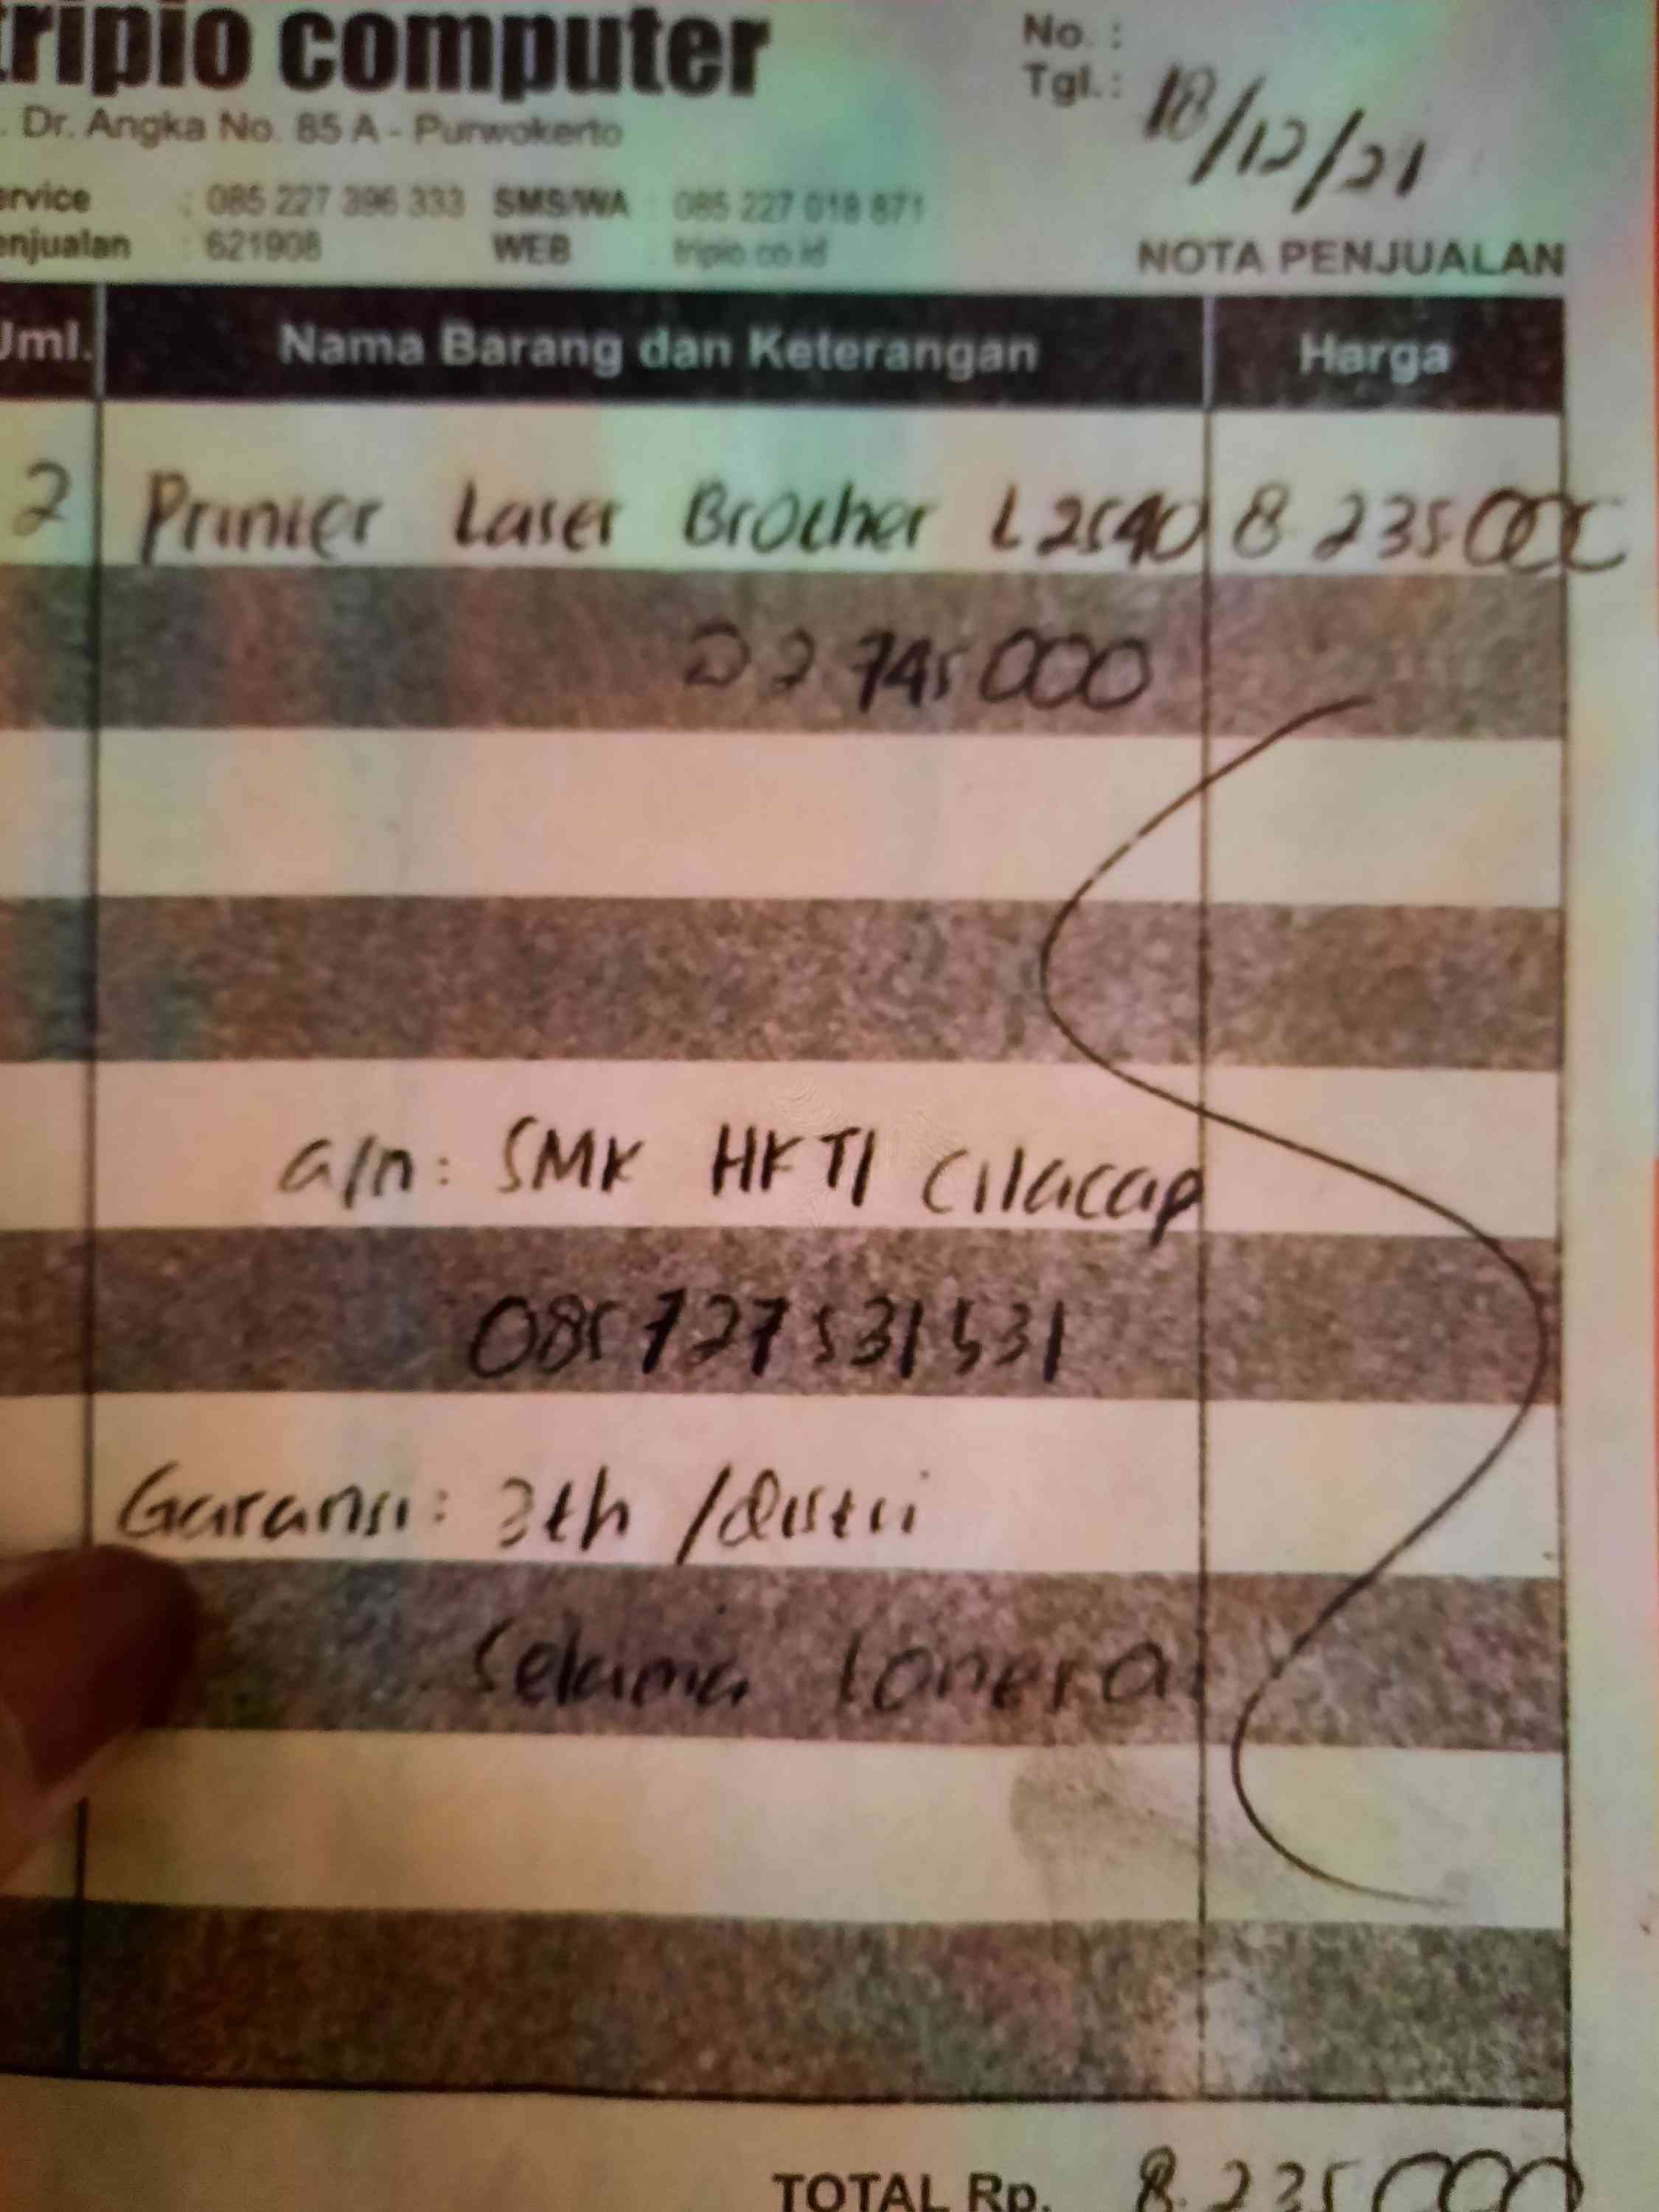 tripio computer
No. :
Tgl.: 18/12/21
. Dr. Angka No. 85 A - Purwokerto
ervice : 085 227 396 333 SMS/WA : 085 227 018 871
enjualan : 621908 WEB : tripio.co.id
NOTA PENJUALAN
Jml. Nama Barang dan Keterangan Harga
2 Printer Laser Brother L2540 8 235 000
2 745 000
a/n: SMK HKTI Cilacap
085 727 531 531
Garansi: 3th /distri
Selama
TOTAL Rp. 8.235 000